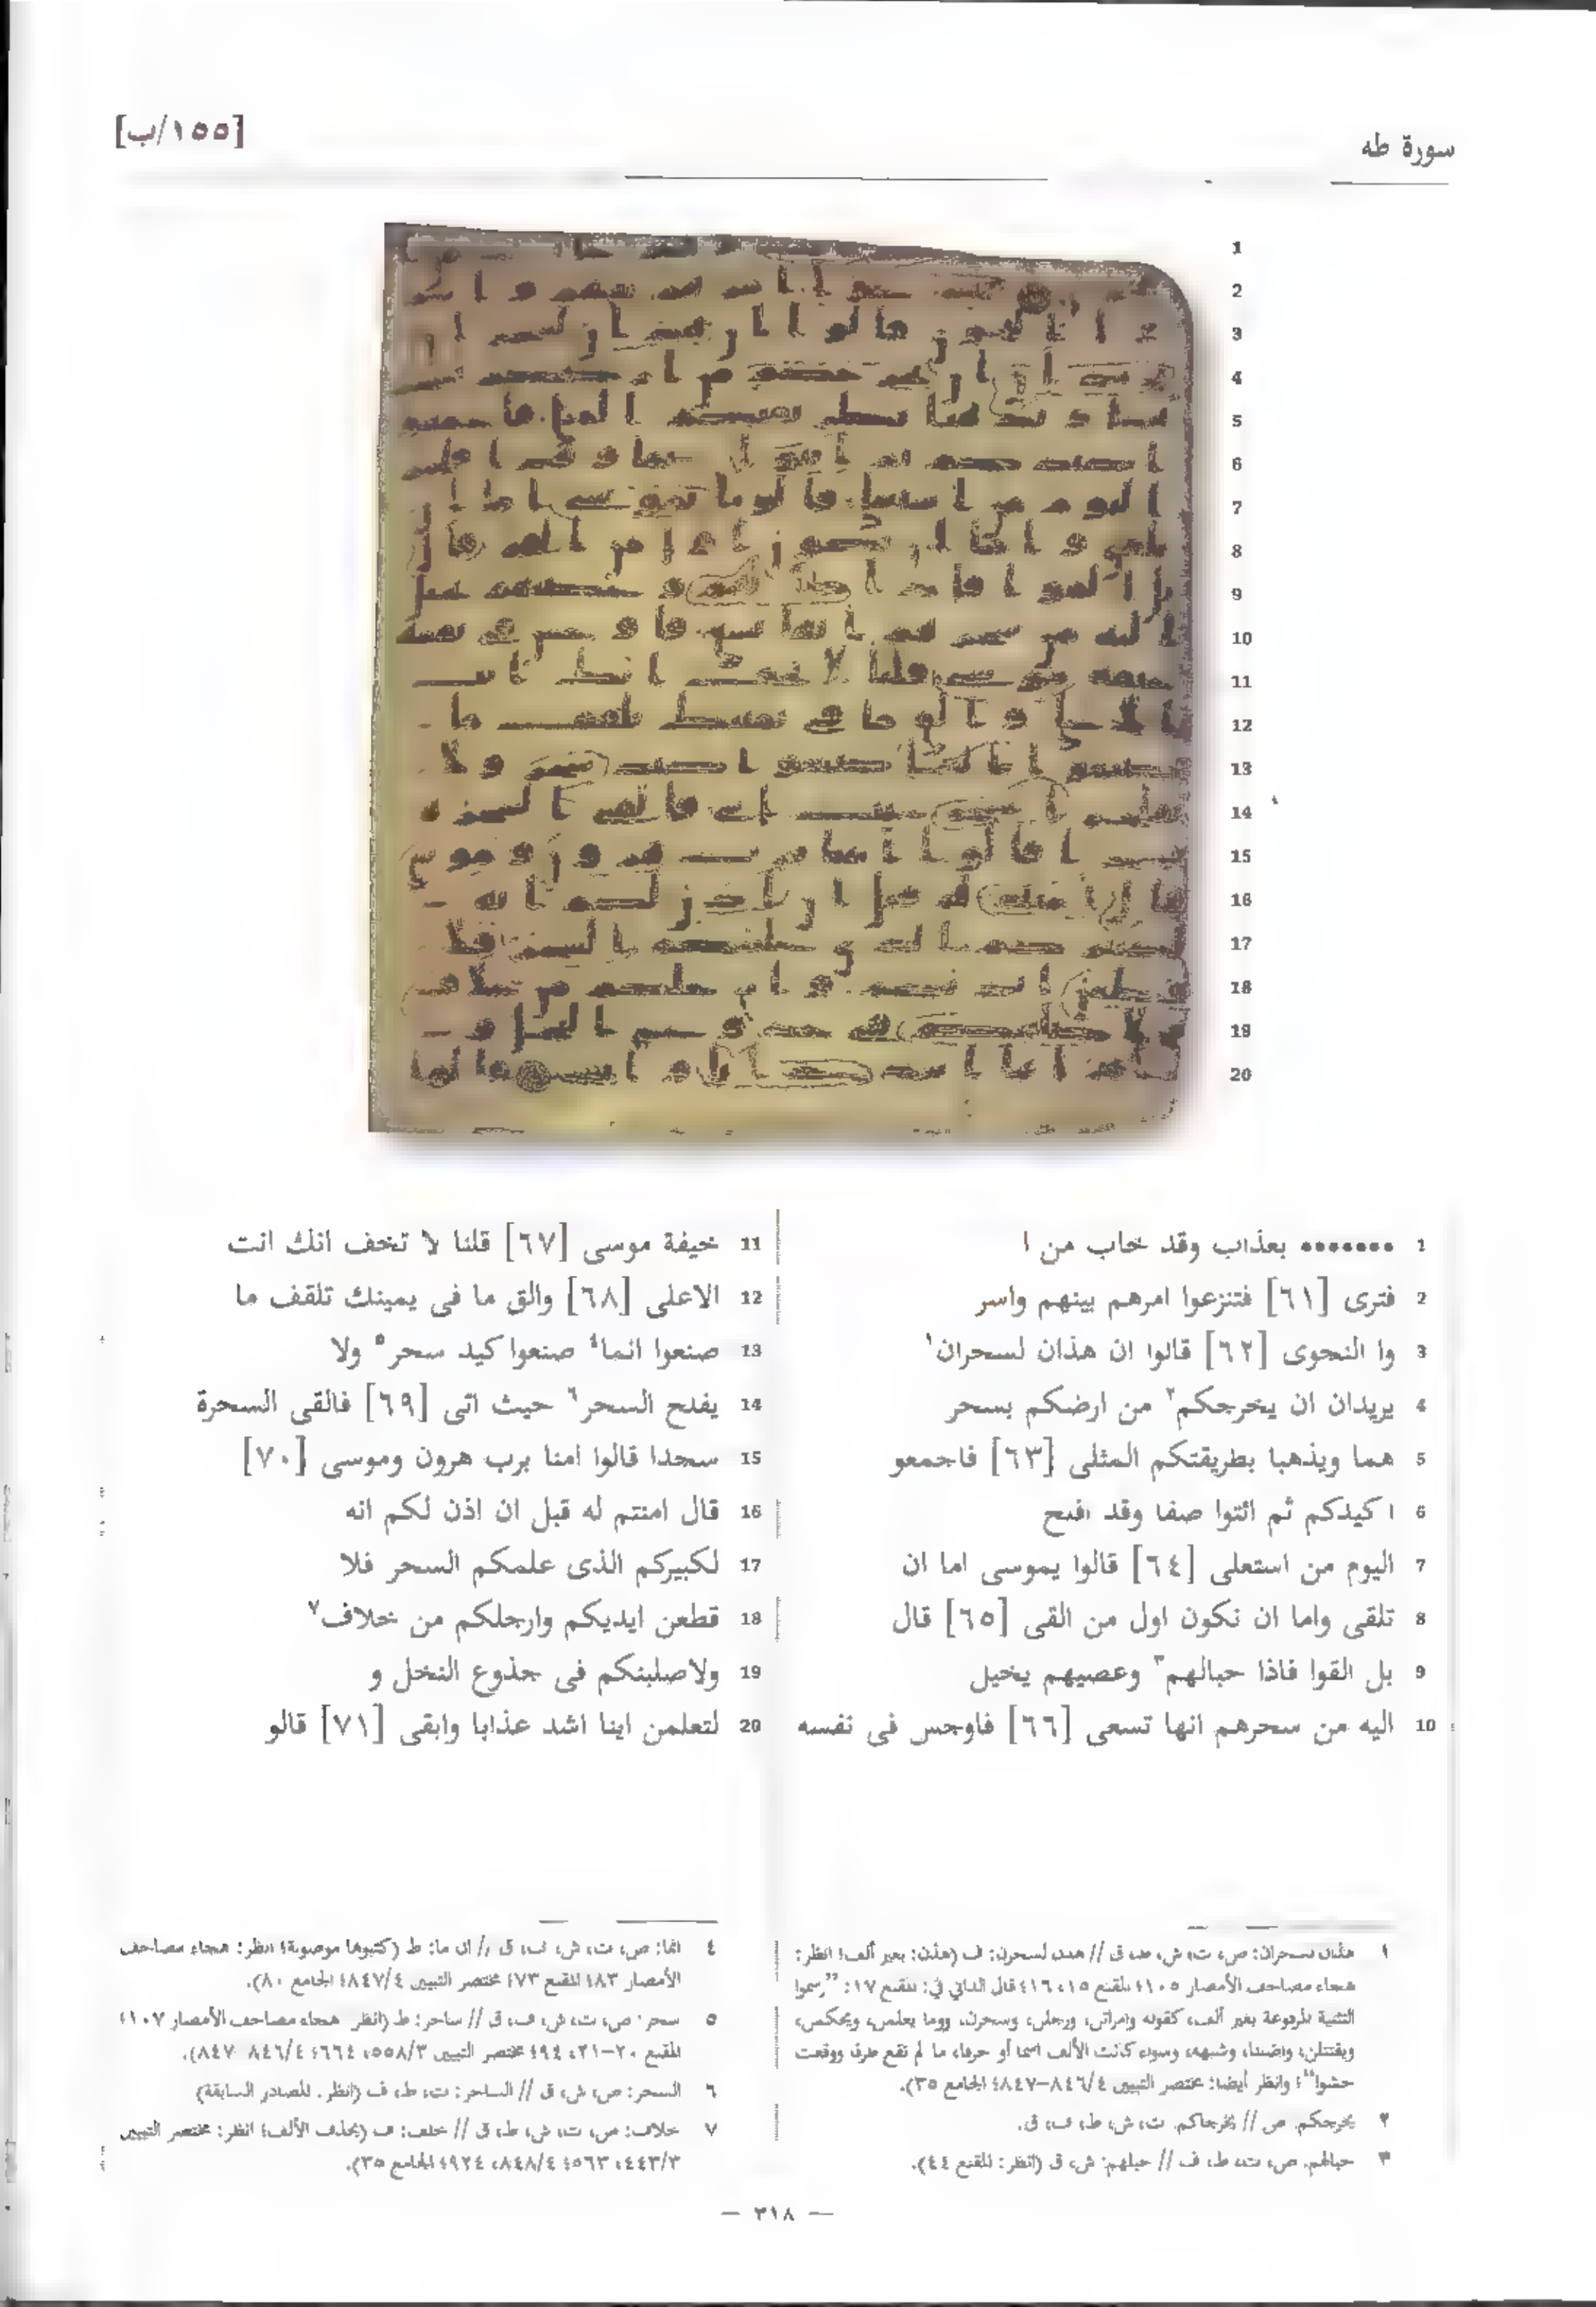 سورة طه
[١٥٥/ب]
1 ••••••• بعذاب وقد خاب من ا
2 فترى [٦١] فتنزعوا امرهم بينهم واسر
3 وا النجوى [٦٢] قالوا ان هذان لسحران١
4 يريدان ان يخرجكم٢ من ارضكم بسحر
5 هما ويذهبا بطريقتكم المثلى [٦٣] فاجمعو
6 ا كيدكم ثم ائتوا صفا وقد افلح
7 اليوم من استعلى [٦٤] قالوا يموسى اما ان
8 تلقى واما ان نكون اول من القى [٦٥] قال
9 بل القوا فاذا حبالهم٣ وعصيهم يخيل
10 اليه من سحرهم انها تسعى [٦٦] فاوجس فى نفسه
11 خيفة موسى [٦٧] قلنا لا تخف انك انت
12 الاعلى [٦٨] والق ما فى يمينك تلقف ما
13 صنعوا انما٤ صنعوا كيد سحر٥ ولا
14 يفلح السحر٦ حيث اتى [٦٩] فالقى السحرة
15 سجدا قالوا امنا برب هرون وموسى [٧٠]
16 قال امنتم له قبل ان اذن لكم انه
17 لكبيركم الذى علمكم السحر فلا
18 قطعن ايديكم وارجلكم من خلاف٧
19 ولاصلبنكم فى جذوع النخل و
20 لتعلمن اينا اشد عذابا وابقى [٧١] قالو
١ هذان لسحران: ص، ت، ش، ط، ق // هذن لسحرن: ف (هذن: بغير ألف؛ انظر:
هجاء مصاحف الأمصار ١٠٥؛ المقنع ١٥، ١٦؛ قال الداني في: المقنع ١٧: "رسموا
التثنية المرفوعة بغير ألف، كقوله وامراتن، ورجلن، وسحرن، وما يعلمن، ويحكمن،
ويقتتلن، واضلنا، وشبهه، وسواء كانت الألف اسما أو حرفا، ما لم تقع طرفا ووقعت
حشوا"؛ وانظر أيضا: مختصر التبيين ٨٤٦/٤–٨٤٧؛ الجامع ٣٥).
٢ يخرجكم: ص // يخرجاكم: ت، ش، ط، ف، ق.
٣ حبالهم: ص، ت، ط، ف // حبلهم: ش، ق (انظر: المقنع ٤٤).
٤ انما: ص، ت، ش، ف، ق // ان ما: ط (كتبوها موصولة؛ انظر: هجاء مصاحف
الأمصار ٨٣؛ المقنع ٧٣؛ مختصر التبيين ٨٤٧/٤؛ الجامع ٨٠).
٥ سحر: ص، ت، ش، ف، ق // ساحر: ط (انظر: هجاء مصاحف الأمصار ١٠٧؛
المقنع ٢٠–٢١، ٩٤؛ مختصر التبيين ٥٥٨/٣، ٦٦٤؛ ٨٤٦/٤، ٨٤٧).
٦ السحر: ص، ش، ق // الساحر: ت، ط، ف (انظر: المصادر السابقة)
٧ خلاف: ص، ت، ش، ط، ق // خلف: ف (بحذف الألف؛ انظر: مختصر التبيين
٤٤٣/٣، ٥٦٣؛ ٨٤٨/٤، ٩٢٤؛ الجامع ٣٥).
— ٣١٨ —